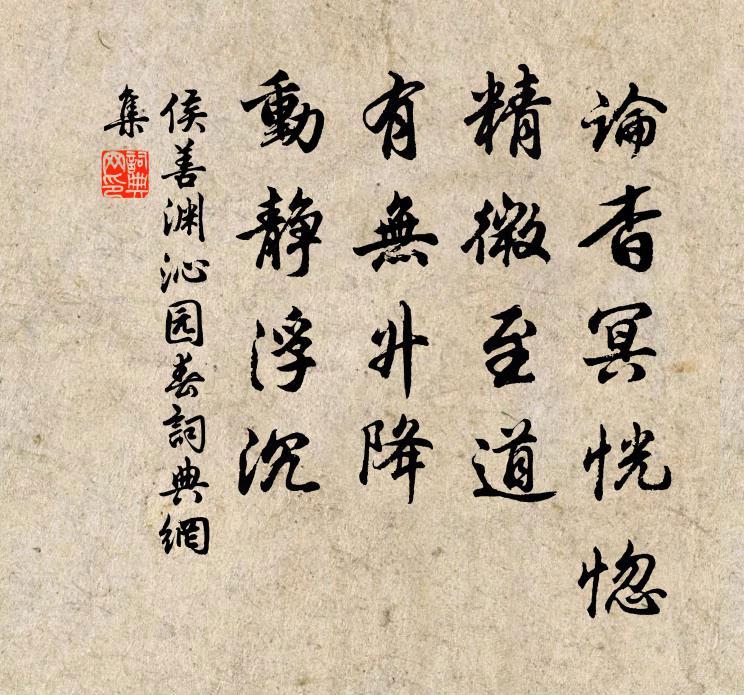 論杳冥恍惚
精微至道
有無升降
動静浮沉
侯善渊沁园春詞典網
集
詞典网印